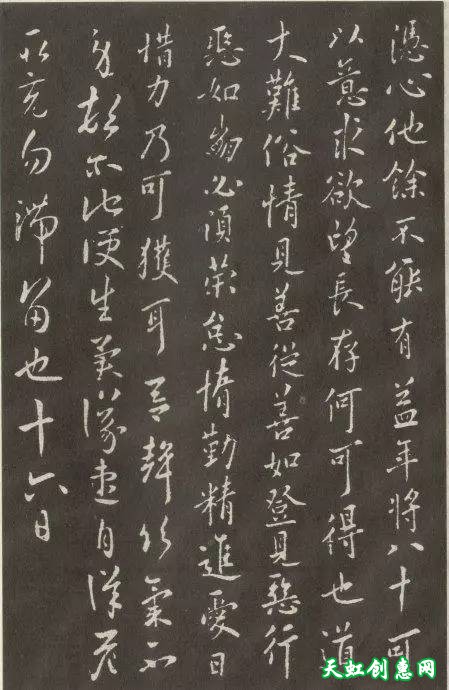 憑心他餘不能有益年將八十可
以意求欲望長存何可得也道
大難俗情見善從善如登見惡行
惡如崩必須策怠惰勤精進愛日
惜力乃可獲耳 聲 氣不
便生 自
勿滯留也十六日
天虹创意网